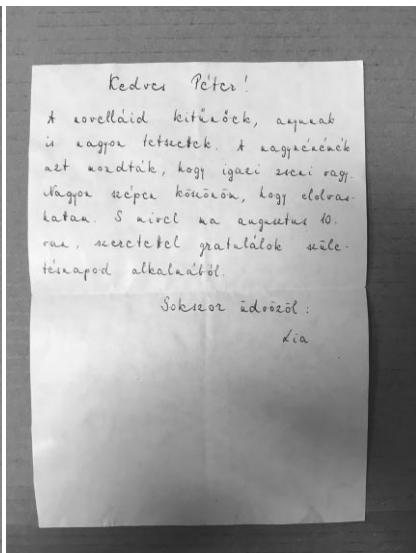 Kedves Péter!
A novelláid kitűnőek, anyunak
is nagyon tetszettek. A nagynénének
azt mondták, hogy igazi zseni vagy.
Nagyon szépen köszönöm, hogy elolvas-
hattam. S mivel ma augusztus 10.
van, szeretettel gratulálok szüle-
tésnapod alkalmából.
Sokszor üdvözöl:
Lia